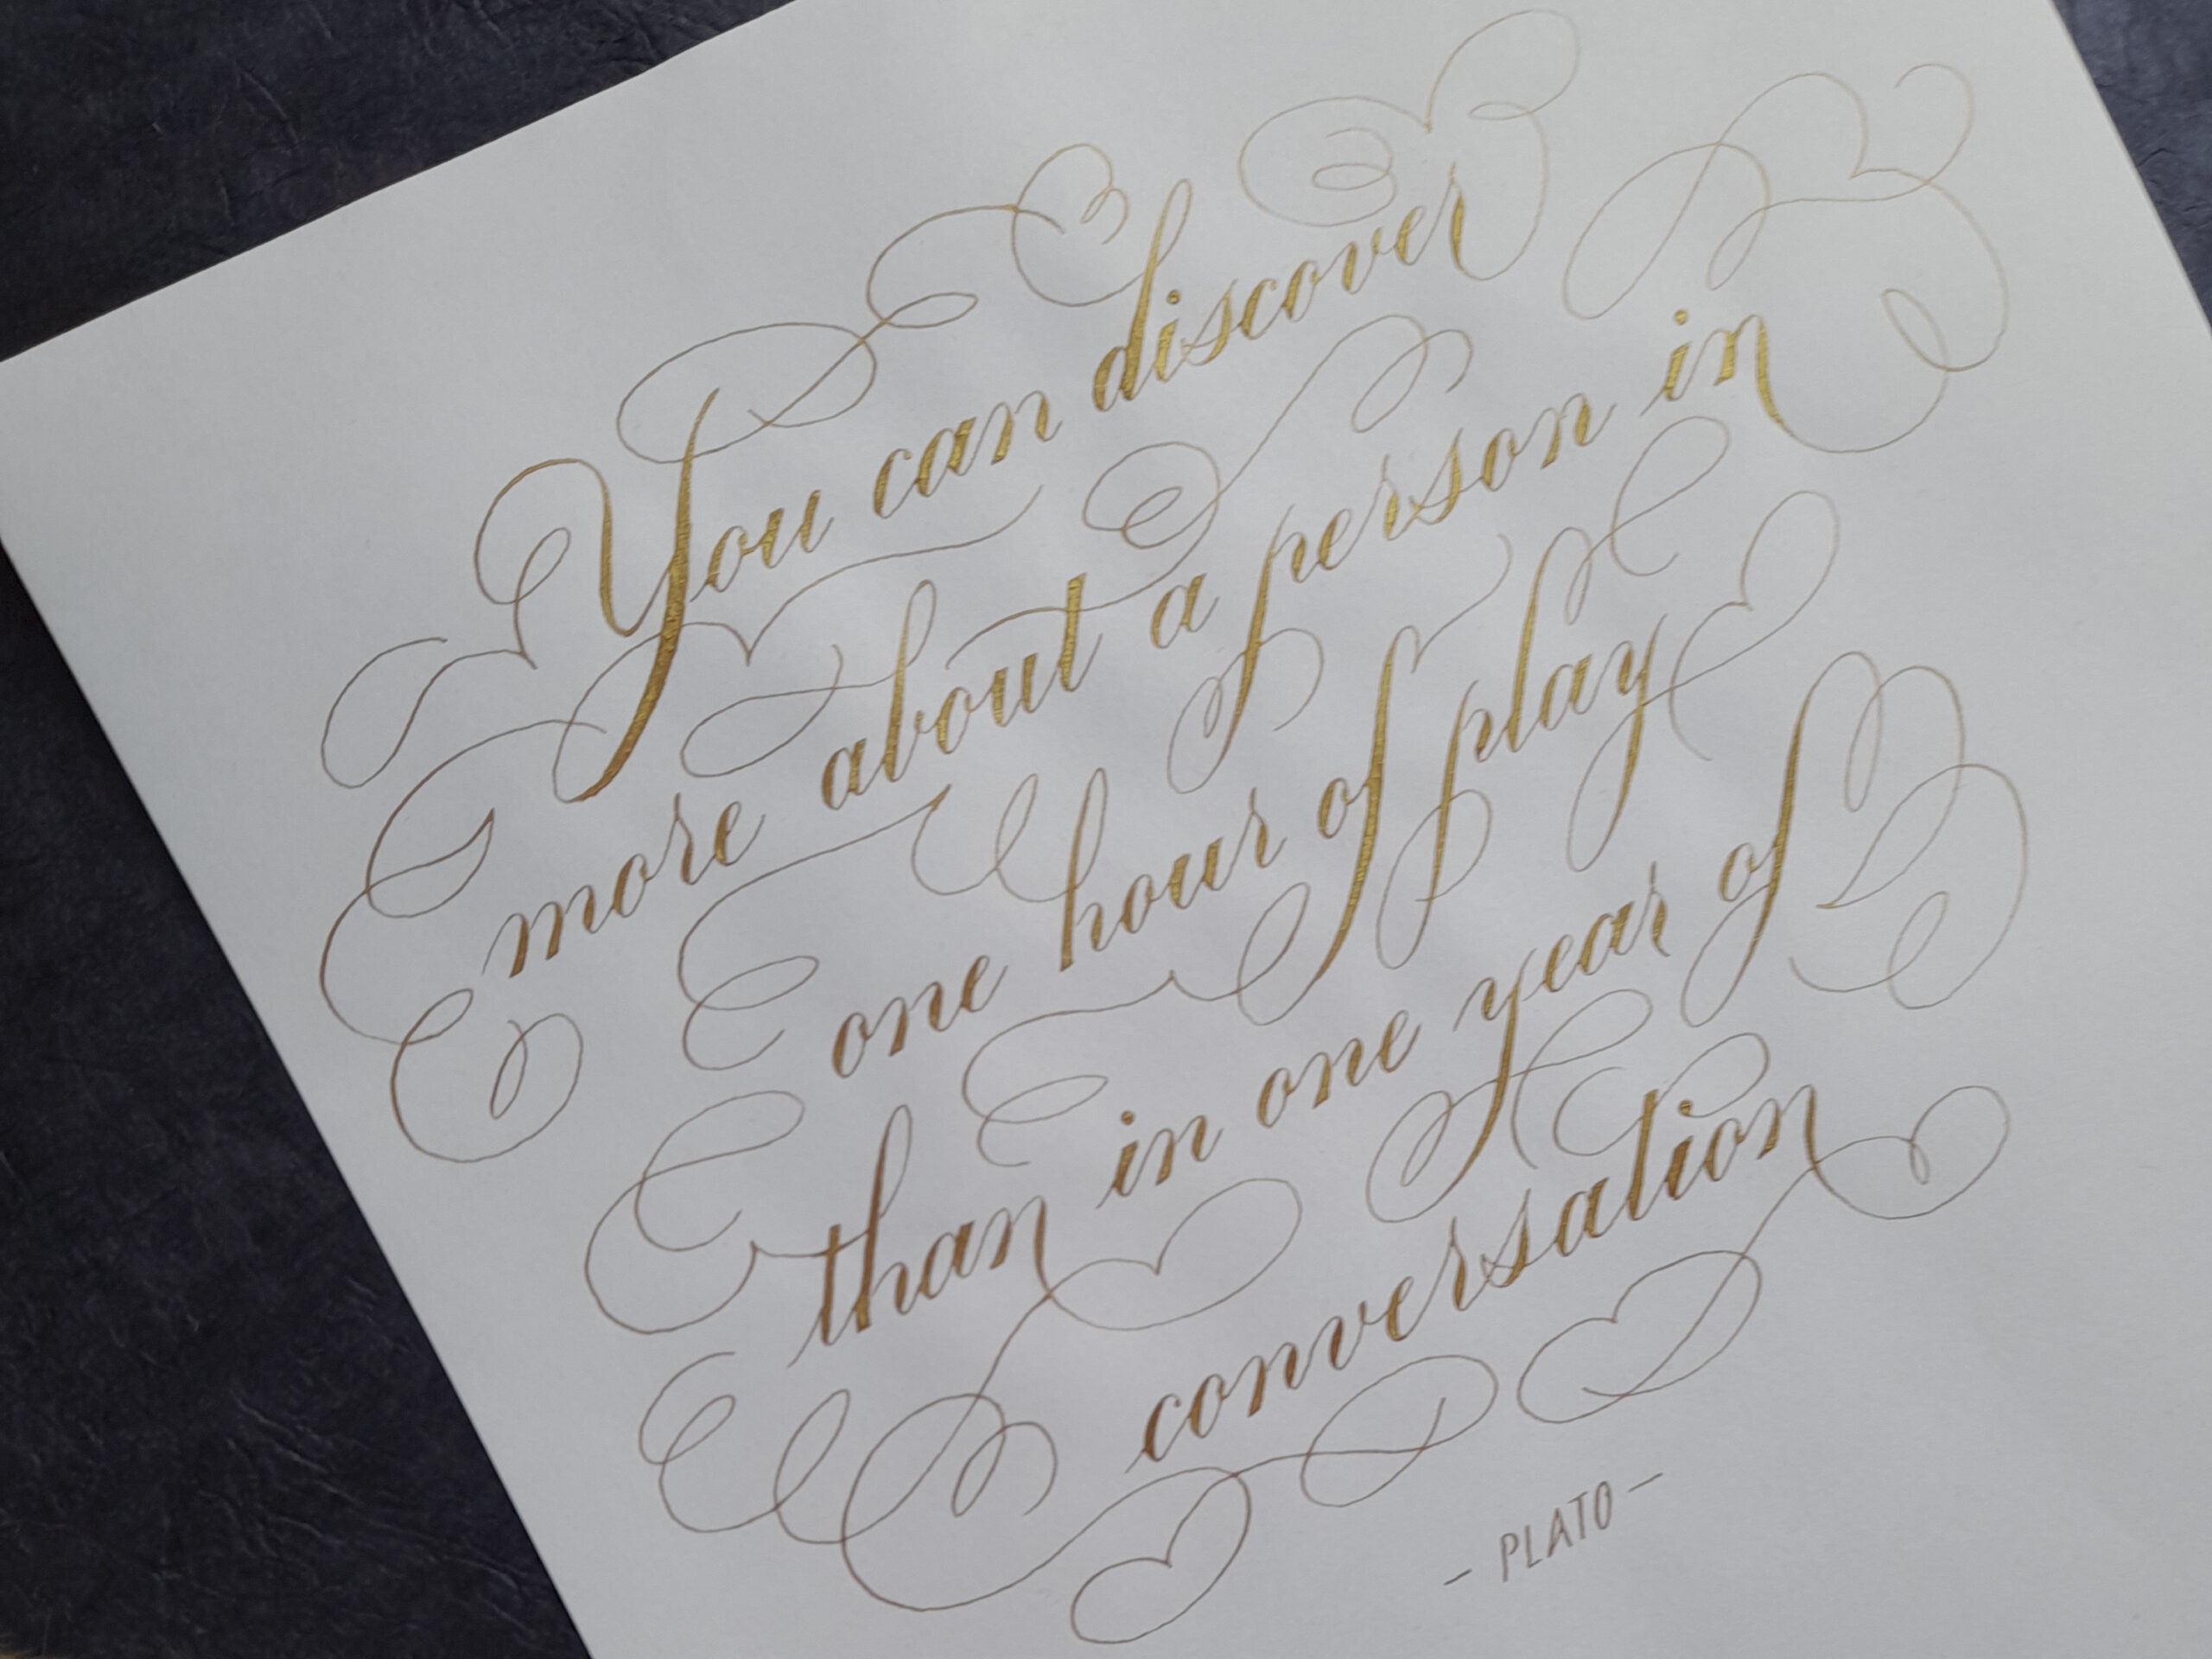 You can discover
more about a person in
one hour of play
than in one year of
conversation
- PLATO -